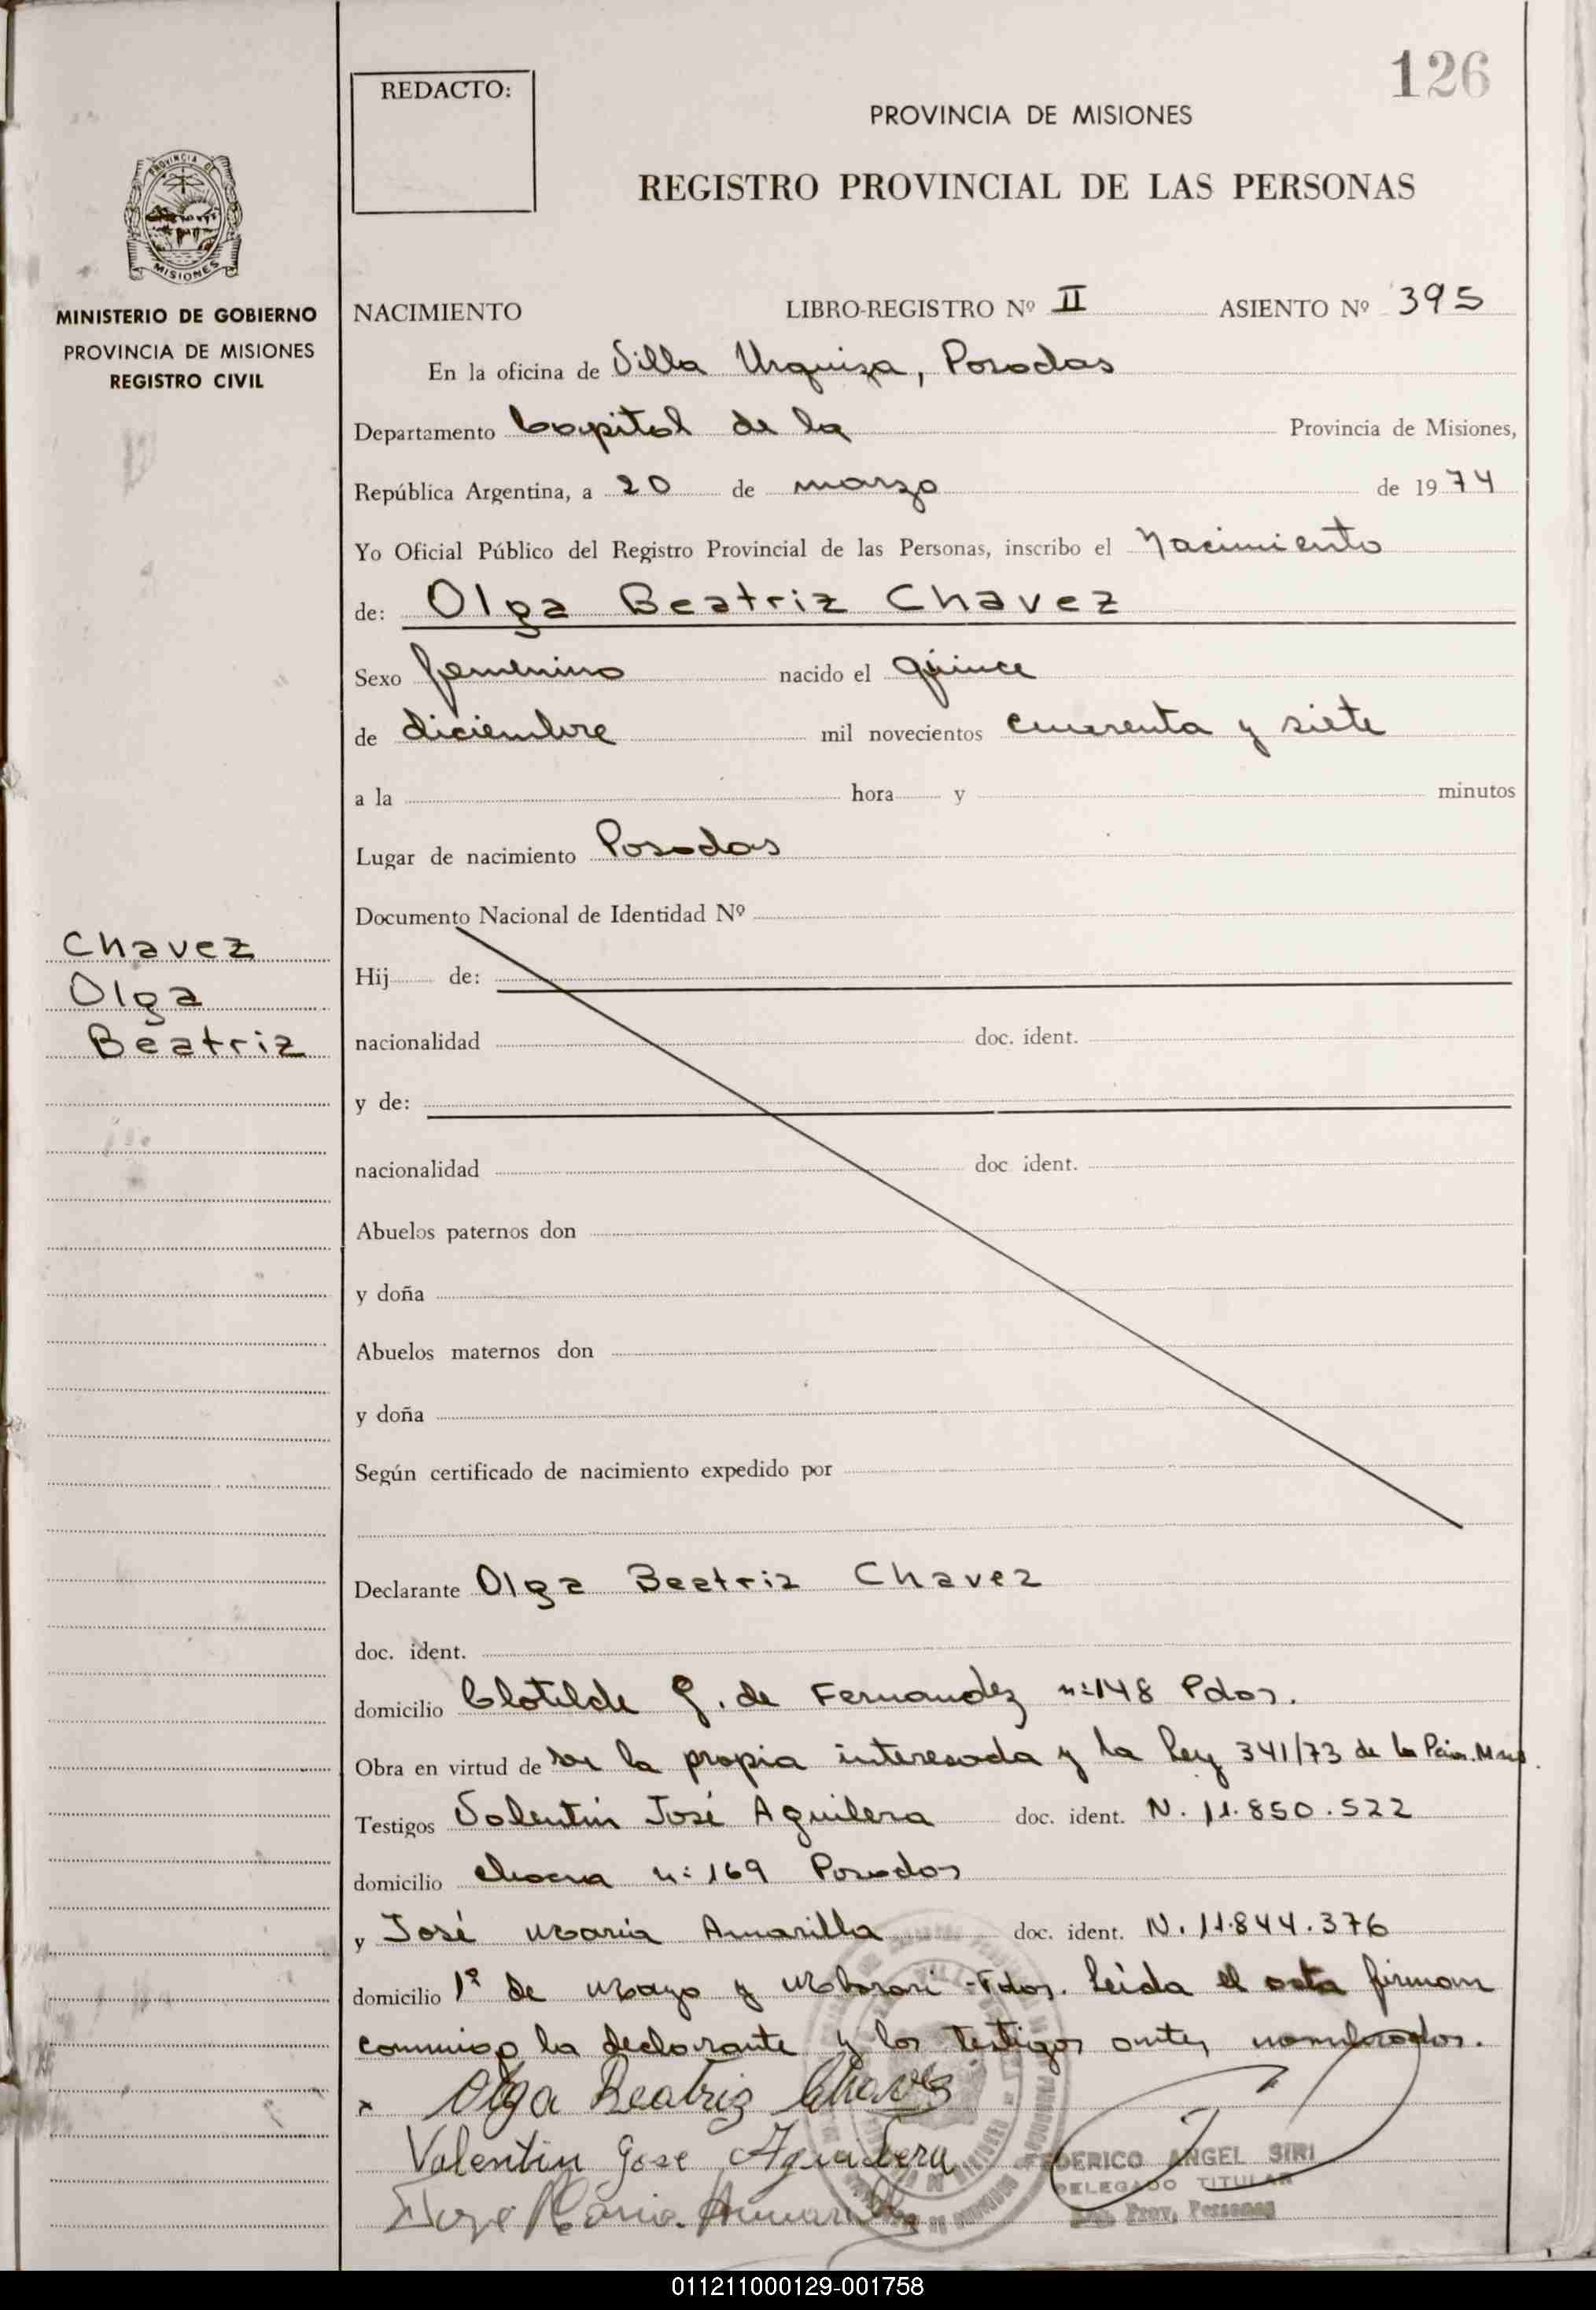 126
REDACTO:
PROVINCIA DE MISIONES
REGISTRO PROVINCIAL DE LAS PERSONAS
PROVINCIA DE
MISIONES
MINISTERIO DE GOBIERNO
PROVINCIA DE MISIONES
REGISTRO CIVIL
NACIMIENTO LIBRO-REGISTRO Nº II ASIENTO Nº 395
En la oficina de Villa Urquiza, Posadas
Departamento Capital de la Provincia de Misiones,
República Argentina, a 20 de marzo de 1974
Yo Oficial Público del Registro Provincial de las Personas, inscribo el Nacimiento
de: Olga Beatriz Chavez
Sexo femenino nacido el quince
de diciembre mil novecientos cuarenta y siete
a la hora y minutos
Lugar de nacimiento Posadas
Documento Nacional de Identidad Nº
Chavez
Olga
Beatriz
Hij de:
nacionalidad doc. ident.
y de:
nacionalidad doc ident.
Abuelos paternos don
y doña
Abuelos maternos don
y doña
Según certificado de nacimiento expedido por
Declarante Olga Beatriz Chavez
doc. ident.
domicilio Clotilde G. de Fernandez nº 148 Pdas.
Obra en virtud de ser la propia interesada y la ley 341/73 de la
Testigos Valentín José Aguilera doc. ident. N. 11.850.522
domicilio chacra nº 169 Posadas
y José María Amarilla doc. ident. N. 11.844.376
domicilio 1º de Mayo y - Pdas. leída el acta firman
conmigo la declarante y los testigos antes nombrados.
x Olga Beatriz Chavez
Valentin Jose Aguilera
Jose Maria Amarilla
FEDERICO ANGEL SIRI
DELEGADO TITULAR
Prov. Personas
011211000129-001758